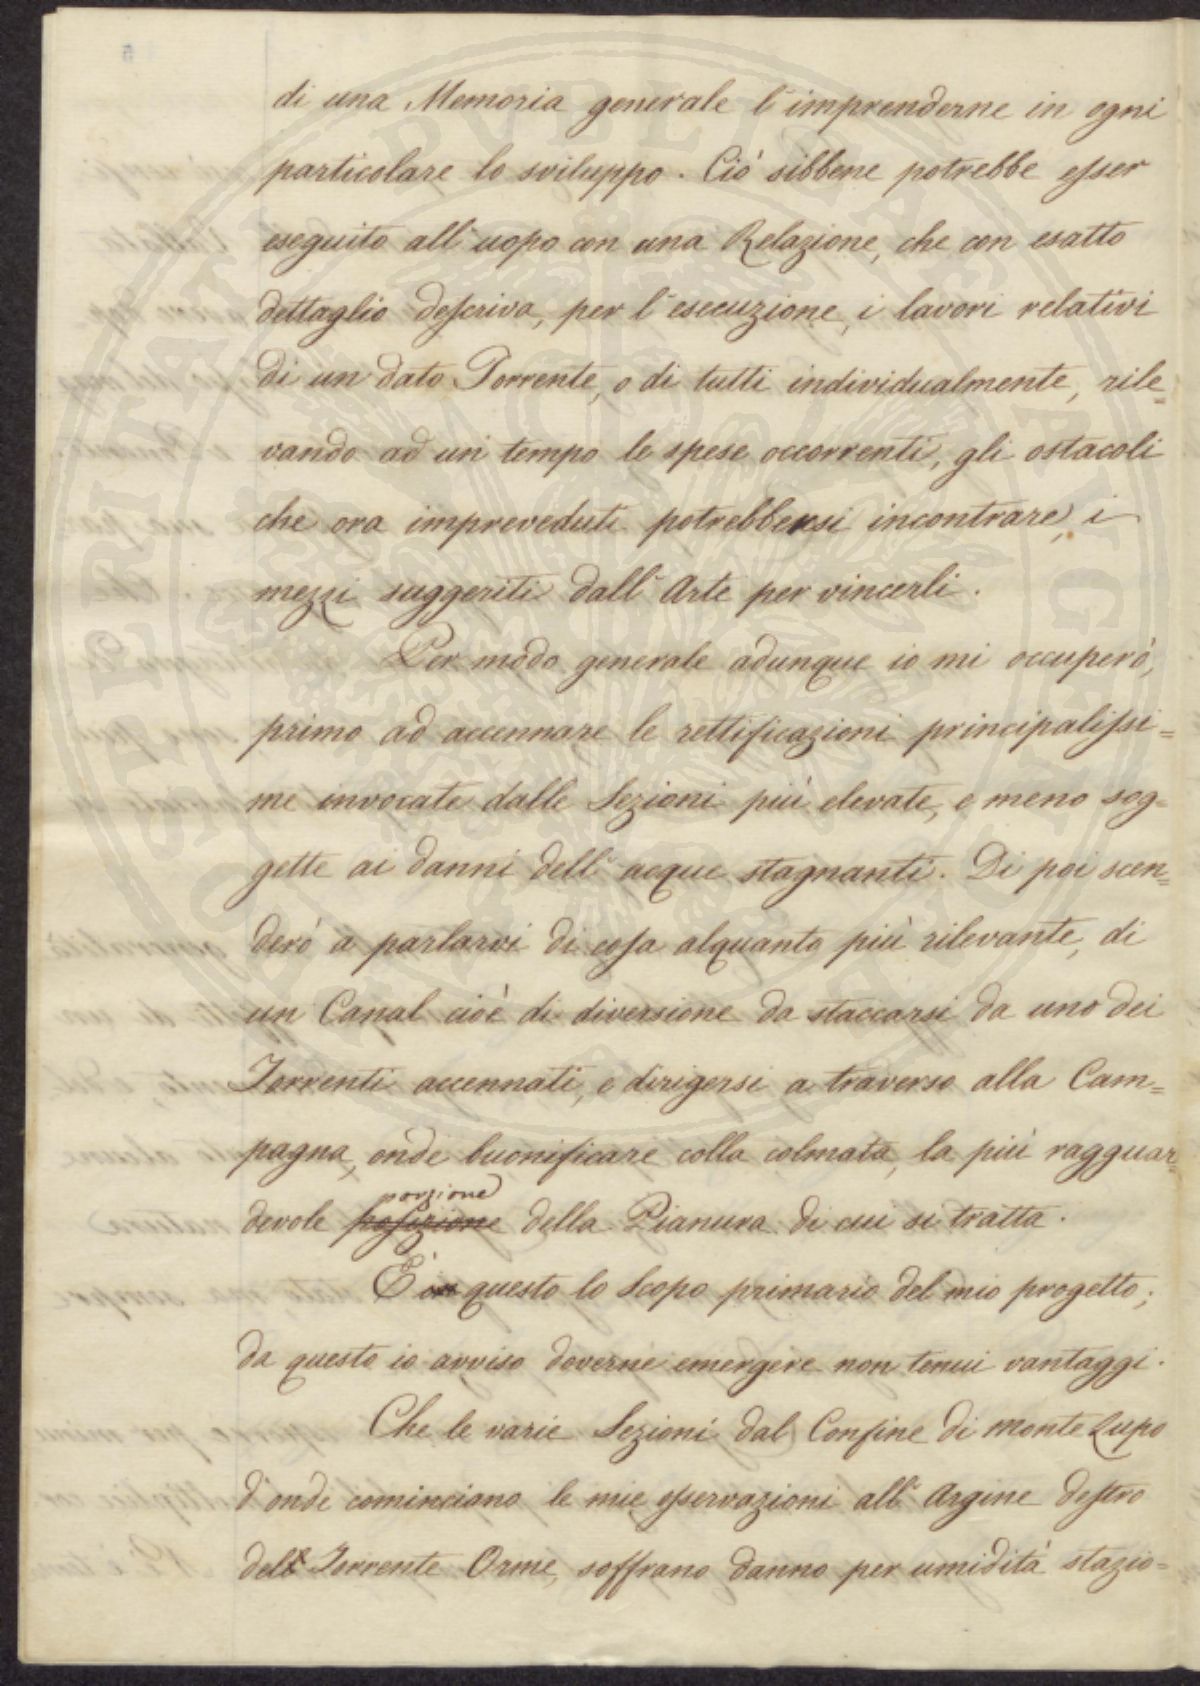 di una Memoria generale l'imprenderne in ogni
particolare lo sviluppo. Ciò sibbene potrebbe esser
eseguito all'uopo con una Relazione, che con esatto
dettaglio descriva, per l'esecuzione, i lavori relativi
di un dato Torrente, o di tutti individualmente, rile=
vando ad un tempo le spese occorrenti, gli ostacoli
che ora impreveduti potrebbersi incontrare, i
mezzi suggeriti dall'Arte per vincerli.
Per modo generale adunque io mi occuperò,
primo ad accennare le rettificazioni principalissi=
me invocate dalle Sezioni più elevate, e meno sog=
gette ai danni dell'acque stagnanti. Di poi scen=
derò a parlarvi di cosa alquanto più rilevante, di
un Canal cioè di diversione da staccarsi da uno dei
Torrenti accennati, e dirigersi a traverso alla Cam=
pagna, onde buonificare colla colmata, la più ragguar=
porzione
devole posizione della Pianura di cui si tratta.
È in questo lo Scopo primario del mio progetto;
da questo io avviso doverne emergere non tenui vantaggi.
Che le varie Sezioni dal Confine di Monte Lupo
d'onde cominciano le mie osservazioni all'Argine destro
dell Torrente Orme, soffrano danno per umidità stazio=